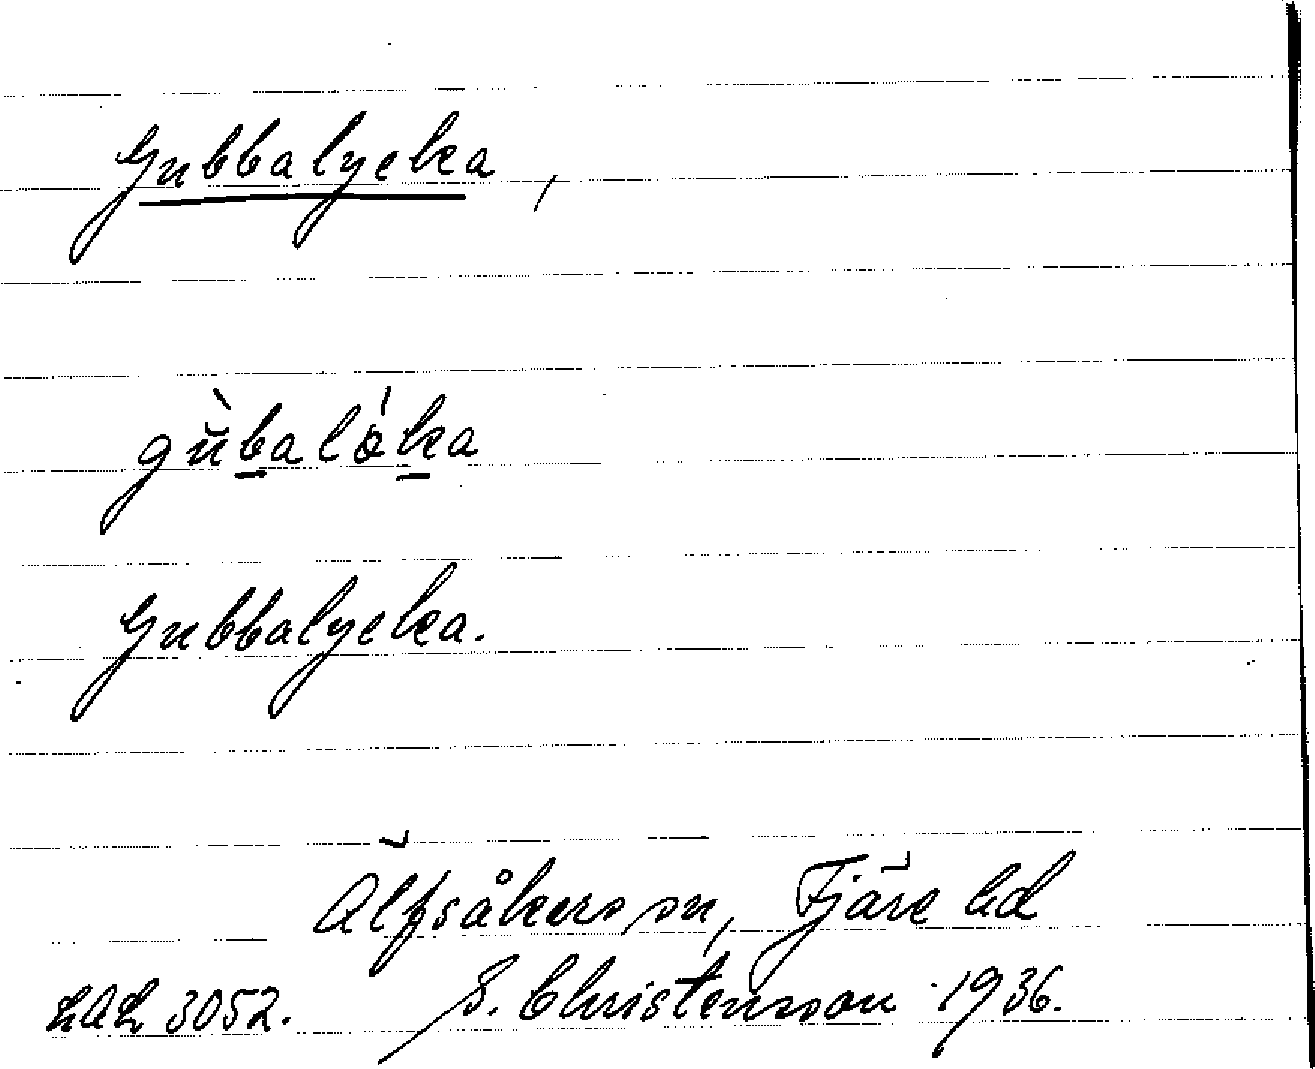 Gubbalycka,
gùbalǿka
Gubbalycka.
Alfsåkers sn, Fjäre hd
LAL 3052. S. Christensson 1936.